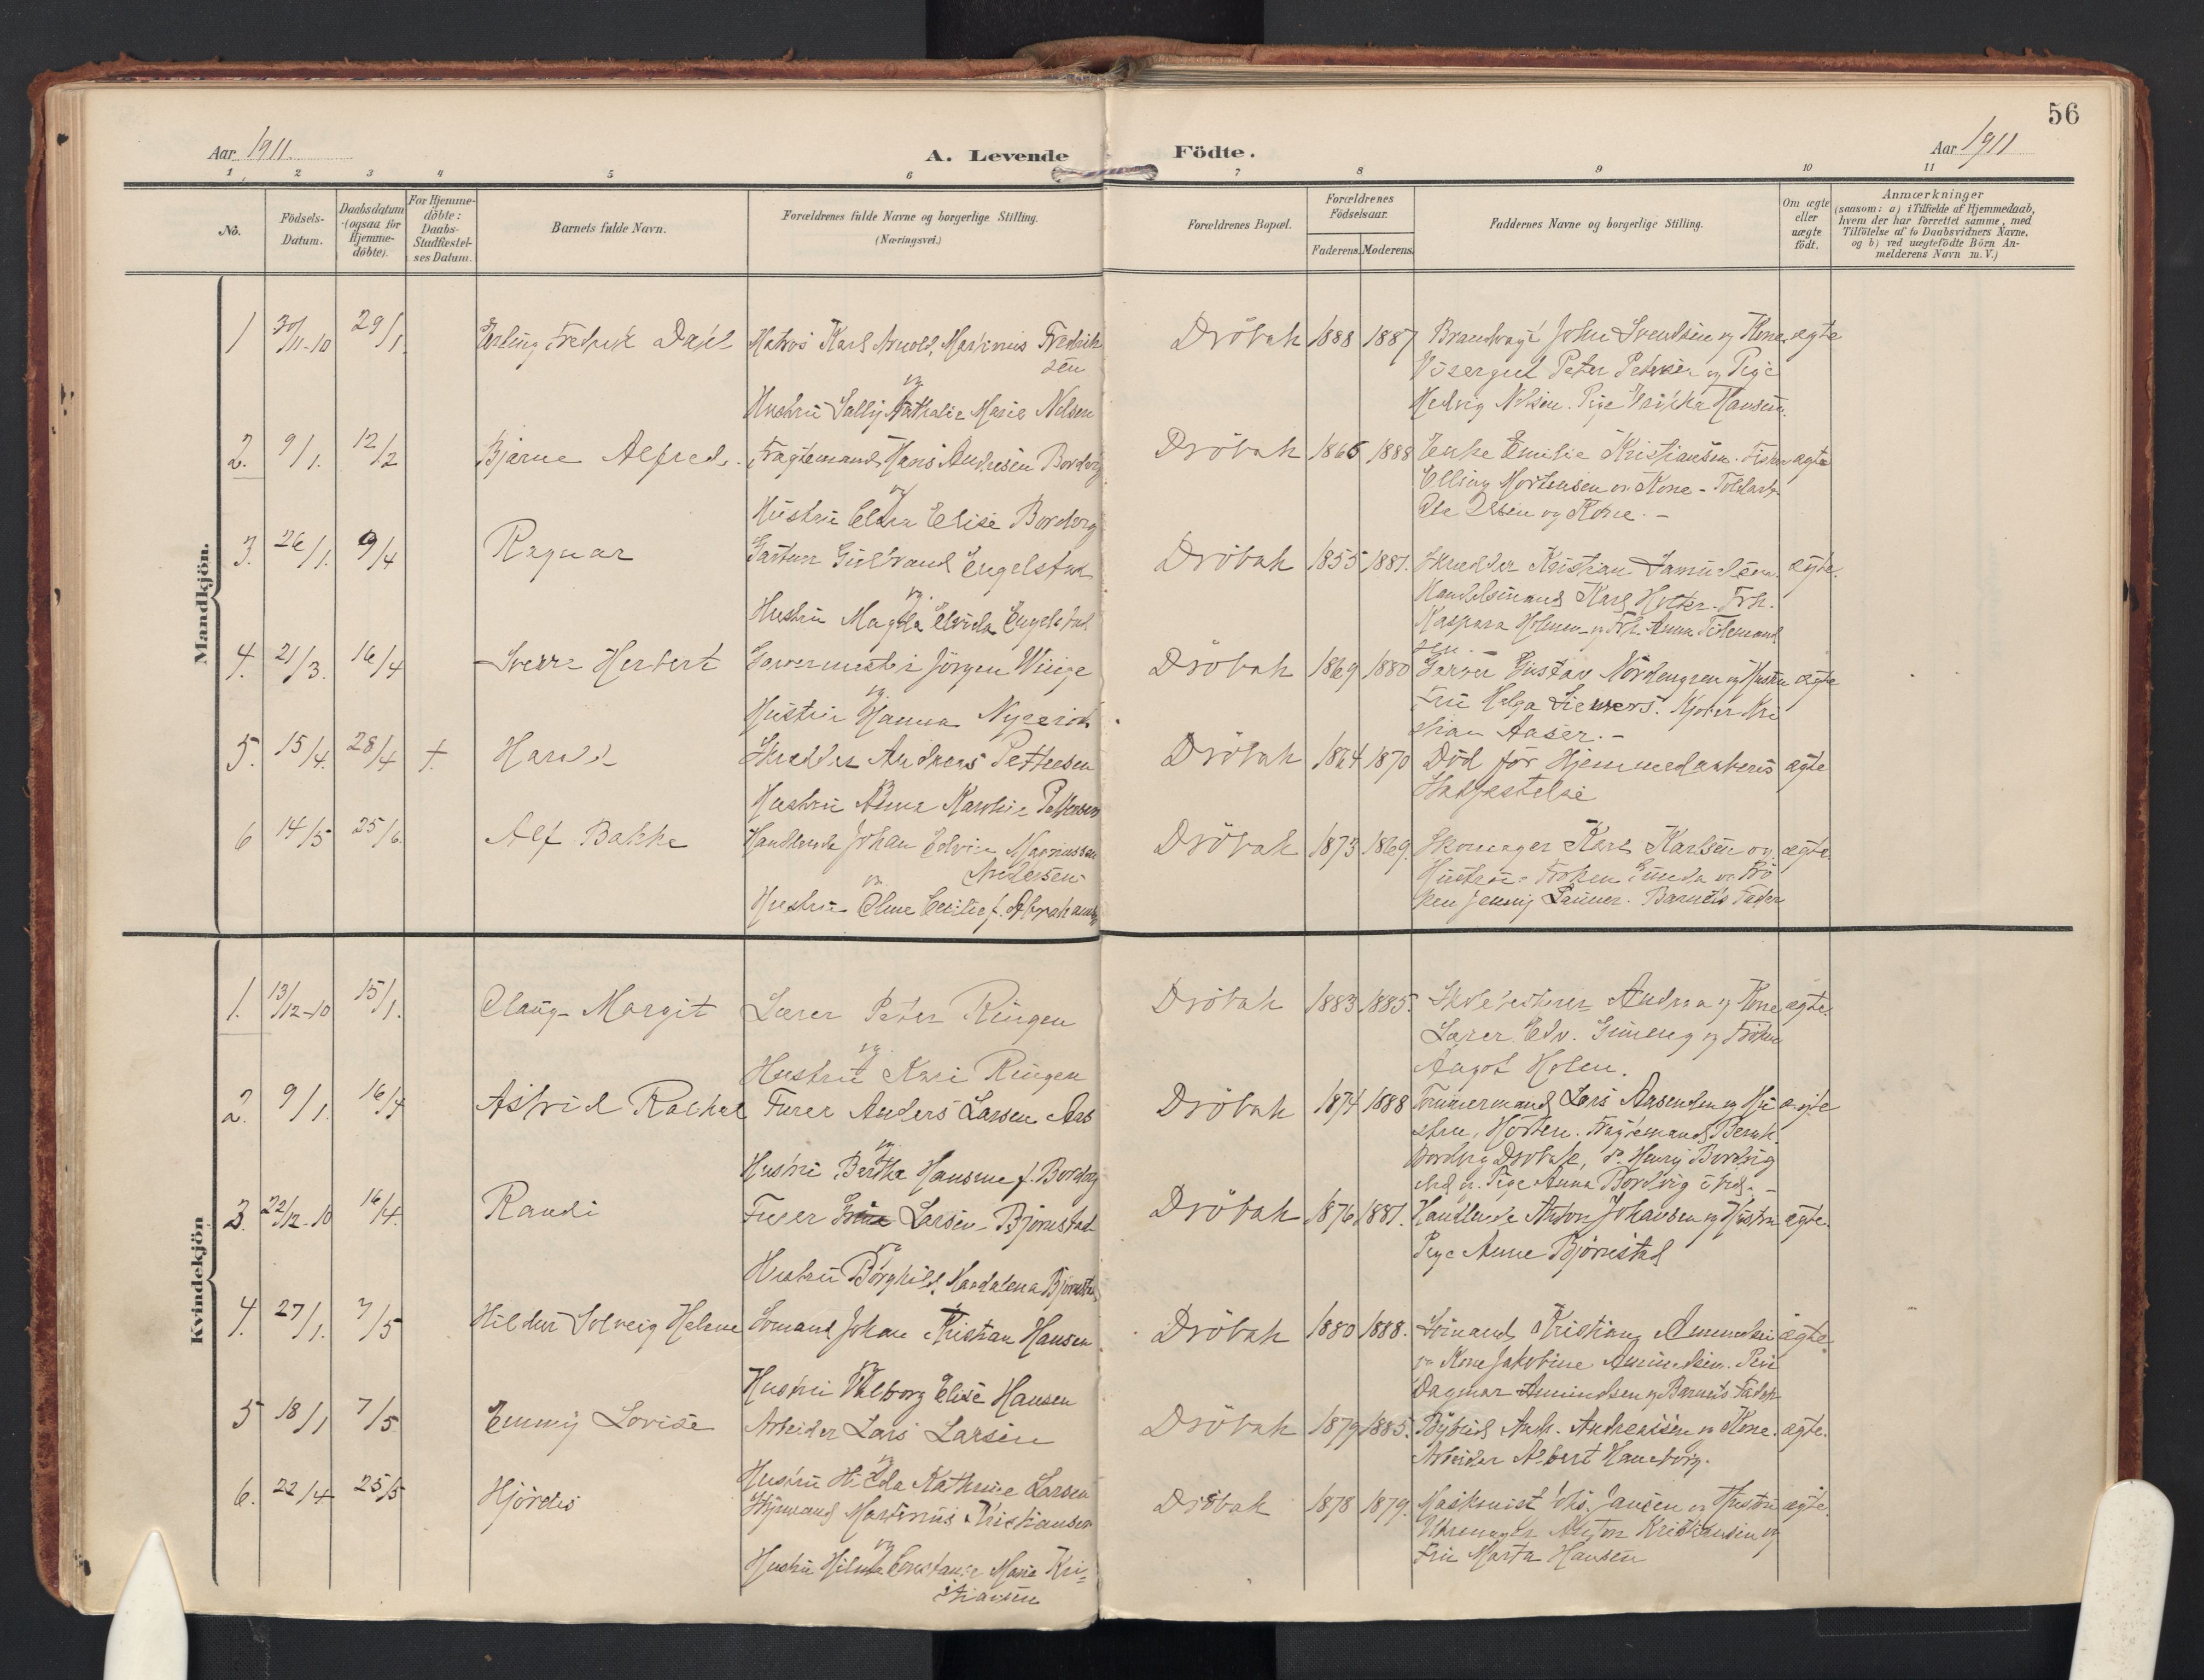 56
Aar 1911.
A. Levende Födte.
Aar 1911
1 2 3 4 5 6 7 8 9 10 11
No.
Födsels-
Datum.
Daabsdatum
(ogsaa for
Hjemme-
döbte).
For Hjemme-
döbte:
Daabs-
Stadfæstel-
ses Datum.
Barnets fulde Navn.
Forældrenes fulde Navne og borgerlige Stilling.
(Næringsvei.)
Forældrenes Bopæl.
Forældrenes
Födselsaar.
Faderens. Moderens.
Faddernes Navne og borgerlige Stilling.
Om ægte
eller
uægte
födt.
Anmærkninger
(saasom: a) i Tilfælde af Hjemmedaab,
hvem der har forrettet samme, med
Tilföielse af to Daabsvidners Navne,
og b) ved uægtefödte Börn An-
melderens Navn m. V.)
Mandkjön.
1 30/11-10 29/1. Erling Fredrik Matros Karl Arnold Marinius Fredrik
sen
og
Hustru Sally Nathalie Marie Nelsen
Dröbak 1888 1887 John Svendsen og Kone ægte
Visergut Peter og Pige
Hedvig Nilsen. Pige Hansen.
2. 9/1. 12/2 Bjarne Alfred. Fragtemand Hans Andresen Bordvig
og
Hustru Elise Bordvig
Dröbak 1866 1888 Enke Emilie Kristiansen. Fisker ægte
Elling Mortensen og Kone -
Ole Olsen og Kone. -
3. 26/1. 9/4 Ragnar Gartner Gulbrand Engelstad
og
Hustru Magda Elvida Engelstad
Dröbak 1855 1881. Skrædder Kristian Samuelsen. ægte.
Handelsmand Karl Holter. Frk.
Kaspara Holmen og Frk. Anna Tidemand
sen.
4. 21/3. 16/4 Sverre Herbert Garvermester Jörgen Winge
og
Hustru Hanna Nygerød
Dröbak 1869 1880 Garver Gustav Nordengren og Hustru ægte
Fru Helga Siewers. Kri
stian Aaser. -
5. 15/4. 28/4 †. Harald Skrædder Andreas Pettersen
og
Hustru Anna Pettersen
Dröbak 1864 1870 Död för Hjemmedaabens ægte
Stadfæstelse
6 14/5 25/6. Alf Bakke Handlende Johan Edvin Magnussen
Andersen
og
Hustru Oline Cecilie f. Abrahamsen
Dröbak 1873 1869. Skomager Karl Karlsen og ægte.
Hustru. Fröken og Frö
ken Jenny Barnets Fader
Kvindekjön
1. 13/12-10 15/1. Olaug Margit Lærer Peter Ringen
og
Hustru Kari Ringen
Dröbak 1883 1885. Skolebestyrer Andraa og Kone ægte.
Lærer Edv. og Fröken
Aagot Holen.
2. 9/1. 16/4 Astrid Rachel Furer Anders Larsen Aas
og
Hustru Bertha Hansine f. Bordvig
Dröbak 1874 1888 Tömmermand Lars Aasenden og Hu ægte
stru, Horten. Fragtemand Bernh.
Bordvig Dröbak, do. Henry Bordvig
og Pige Anna Bordvig -
3. 22/12-10 16/4. Randi Furer Larsen Björnstad
og
Hustru Borghild Magdalena Björnstad
Dröbak 1876 1881. Handlende Anton Johansen og Hustru ægte.
Pige Anne Björnstad
4. 27/1. 7/5 Hildur Solveig Helene Sömand Johan Kristian Hansen
og
Hustru Valborg Elise Hansen
Dröbak 1880 1888. Sömand Kristian Amundsen ægte.
og Kone Jakobine Amundsen. Pige
Dagmar Amundsen og Barnets Fader
5 18/1 7/5. Emmy Lovise Arbeider Lars Larsen
og
Hustru Hilda Kathrine Larsen
Dröbak 1879 1885. Bybud Andr. Andreasen og Kone. ægte.
Arbeider Albert Haneborg.
6. 22/4 25/5 Hjördis Styrmand Martinius Kristiansen
og
Hustru Hilma Constanse Marie Kri=
stiansen
Dröbak 1878 1879. Maskinist Jansen og Hustru ægte.
Uhrmager Anton Kristiansen og
Fru Marta Hansen